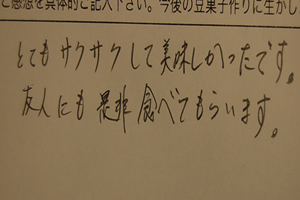 ご感想を具体的ご記入下さい。今後の豆菓子作りに生かし
とてもサクサクして美味しかったです。
友人にも是非食べてもらいます。